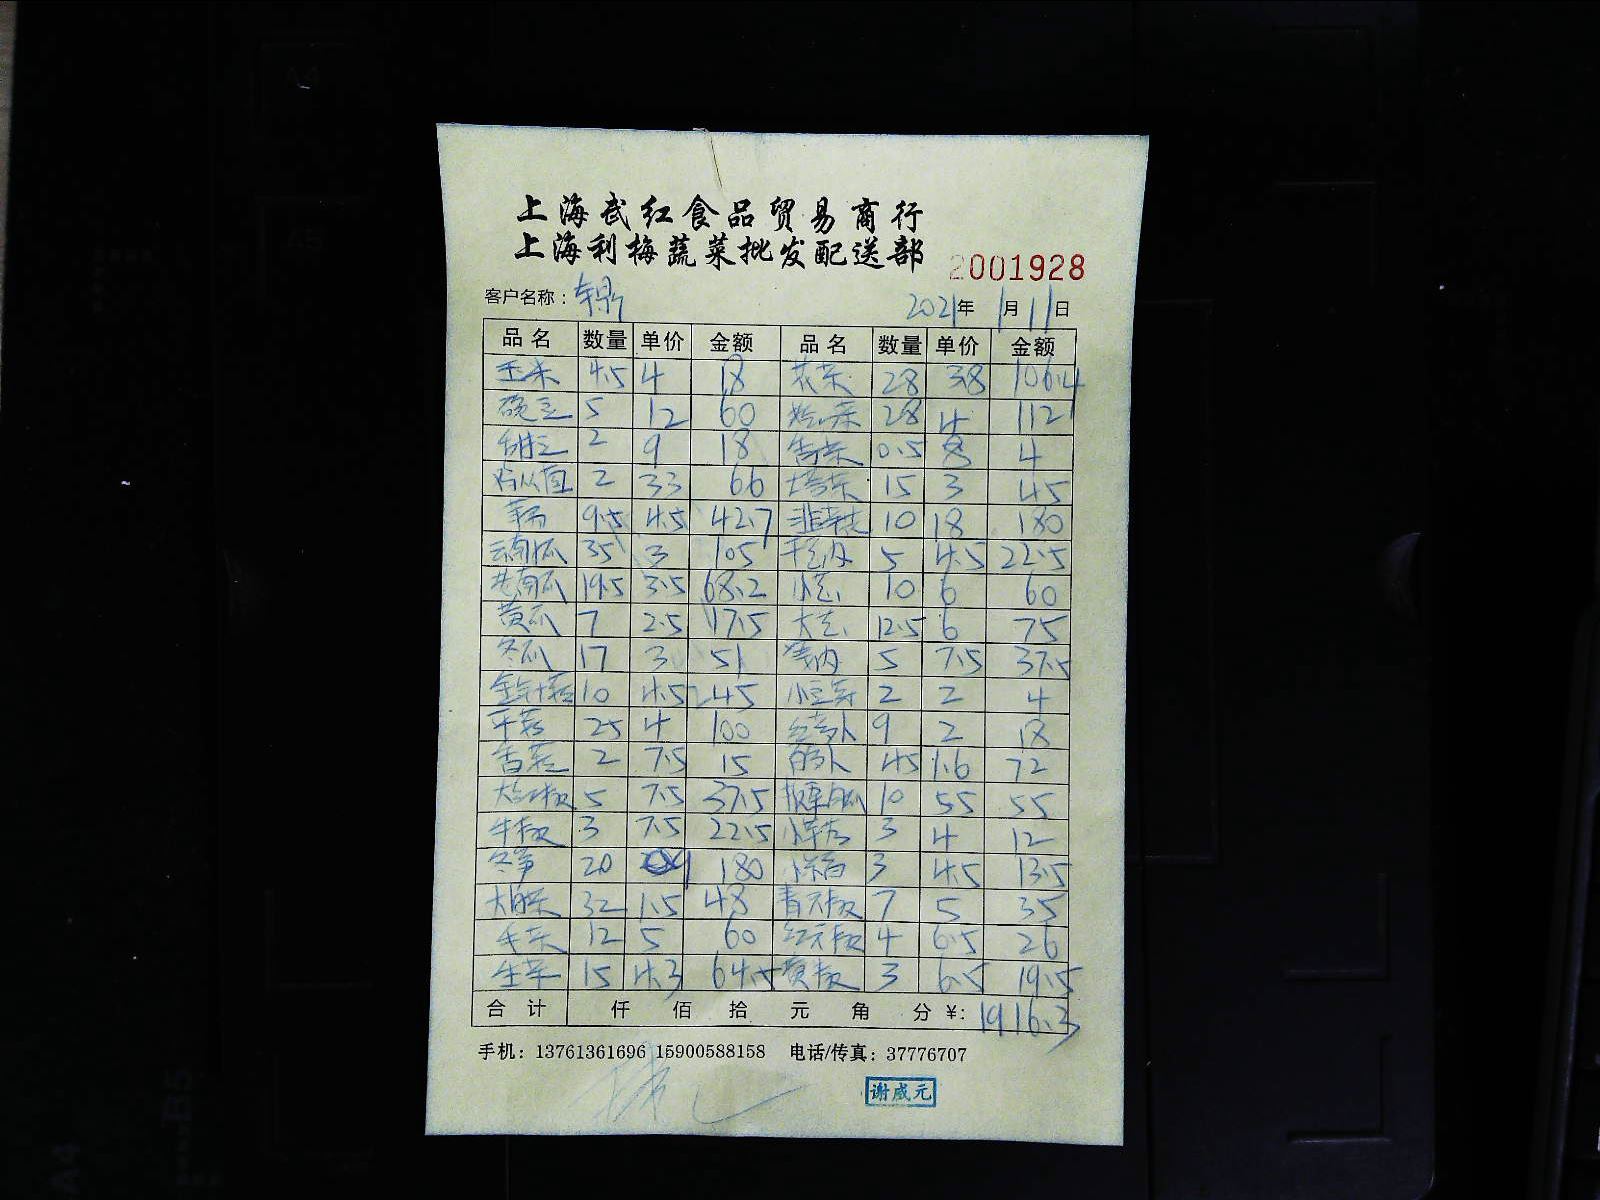 上海武红食品贸易商行
上海利梅蔬菜批发配送部
2001928
客户名称： 2021年 1月11日
品名 数量 单价 金额 品名 数量 单价 金额
玉米 4.5 4 18 花菜 28 3.8 106.4
豌豆 5 12 60 28 4 112
甜豆 2 9 18 香菜 0.5 8 4
2 33 66 塔菜 15 3 45
9.5 4.5 42.7 10 18 180
35 3 105 5 4.5 22.5
老南瓜 19.5 3.5 68.2 小芒 10 6 60
黄瓜 7 2.5 17.5 大芒 12.5 6 75
冬瓜 17 3 51 5 7.5 37.5
金针菇 10 4.5 245 小豆芽 2 2 4
平菇 25 4 100 9 2 18
香菇 2 7.5 15 45 1.6 72
大红椒 5 7.5 37.5 10 55 55
牛椒 3 7.5 22.5 3 4 12
冬笋 20 9 180 3 4.5 13.5
大白菜 32 1.5 48 青元椒 7 5 35
毛菜 12 5 60 红元椒 4 6.5 26
生菜 15 4.3 64.5 黄椒 3 6.5 19.5
合计 仟 佰 拾 元 角 分 ¥: 1916.3
手机：13761361696 15900588158 电话/传真：37776707
谢咸元